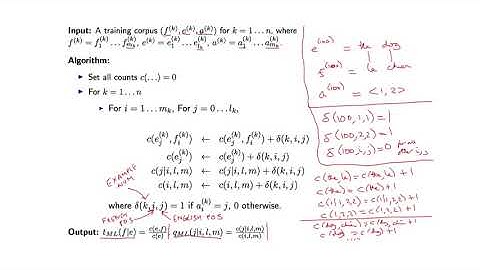 Input: A training corpus (f^(k), e^(k), a^(k)) for k = 1 … n, where
f^(k) = f_1^(k) … f_{m_k}^(k), e^(k) = e_1^(k) … e_{l_k}^(k), a^(k) = a_1^(k) … a_{m_k}^(k).
Algorithm:
▸ Set all counts c(…) = 0
▸ For k = 1 … n
▸ For i = 1 … m_k, For j = 0 … l_k,
c(e_j^(k), f_i^(k)) ← c(e_j^(k), f_i^(k)) + δ(k, i, j)
c(e_j^(k)) ← c(e_j^(k)) + δ(k, i, j)
c(j|i, l, m) ← c(j|i, l, m) + δ(k, i, j)
c(i, l, m) ← c(i, l, m) + δ(k, i, j)
EXAMPLE
NUM
where δ(k, i, j) = 1 if a_i^(k) = j, 0 otherwise.
POS
ENGLISH POS
Output: t_ML(f|e) = c(e,f)/c(e) q_ML(j|i, l, m) = c(j|i,l,m)/c(i,l,m)
e^(100) = the dog
f^(100) = le chien
a^(100) = <1, 2>
δ(100, 1, 1) = 1
δ(100, 2, 2) = 1
δ(100, i, j) = 0 for all
other i, j
c(the, le) = c(the, le) + 1
c(the) = c(the) + 1
c(1|1,2,2) = c(1|1,2,2) + 1
c(1,2,2) = c(1,2,2) + 1
+1
c(dog) = c(dog) + 1